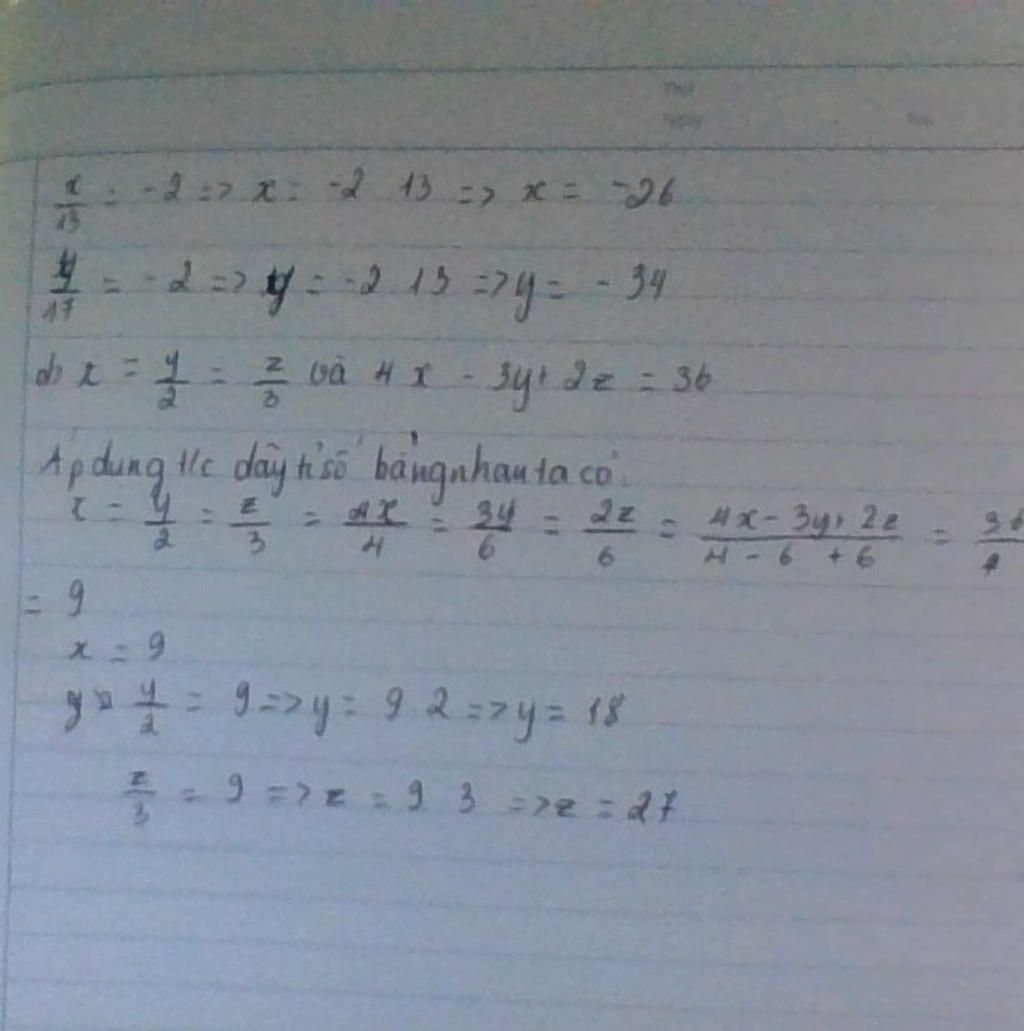 Thứ
Ngày
x/13 = -2 => x = -2 . 13 => x = -26
y/17 = -2 => y = -2 . 13 => y = -34
d) x = y/2 = z/3 và 4x - 3y + 2z = 36
Áp dụng t/c dãy tỉ số bằng nhau ta có:
x = y/2 = z/3 = 4x/4 = 3y/6 = 2z/6 = (4x - 3y + 2z)/(4 - 6 + 6) = 36/4
= 9
x = 9
y/2 = 9 => y = 9 . 2 => y = 18
z/3 = 9 => z = 9 . 3 => z = 27